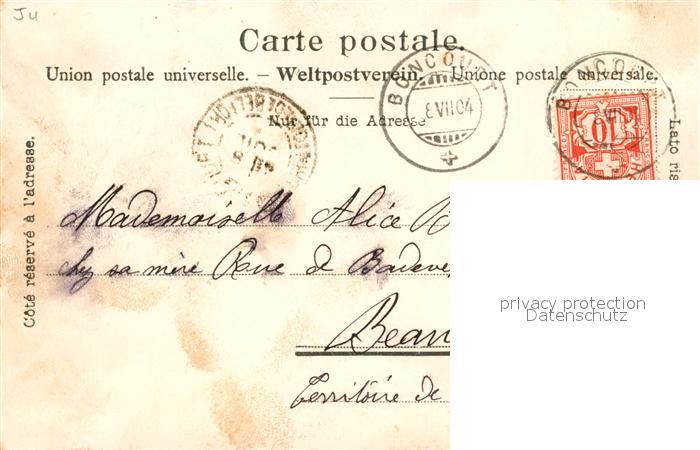 Ju
Carte postale.
Union postale universelle. – Weltpostverein. – Unione postale universale.
Nur für die Adresse
BONCOURT
8 VII 04
BONCOURT
10
Côté réservé à l'adresse.
Lato ris
Mademoiselle Alice B
chez sa mère Rue de Badeve
Beau
Territoire de
privacy protection
Datenschutz